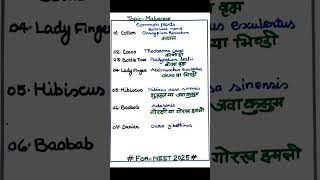 Topic- Malvaceae
Common plants
Binomial name
01. Cotton Gossypium
कपास
02. Cocoa Theobroma cacao
03. Bottle Tree
04. Lady Finger Abelmoschus esculentus
या भिण्डी
05. Hibiscus Hibiscus rosa sinensis
गुड़हल या जवा कुसुम
06. Baobab Adansonia
गोरखी या गोरख इमली
07. Durian Durio zibethinus
# For-NEST 2025 #
04. Lady Finger
esculentus
या भिण्डी
05. Hibiscus
sa sinensis
जवा कुसुम
06. Baobab
गोरख इमली